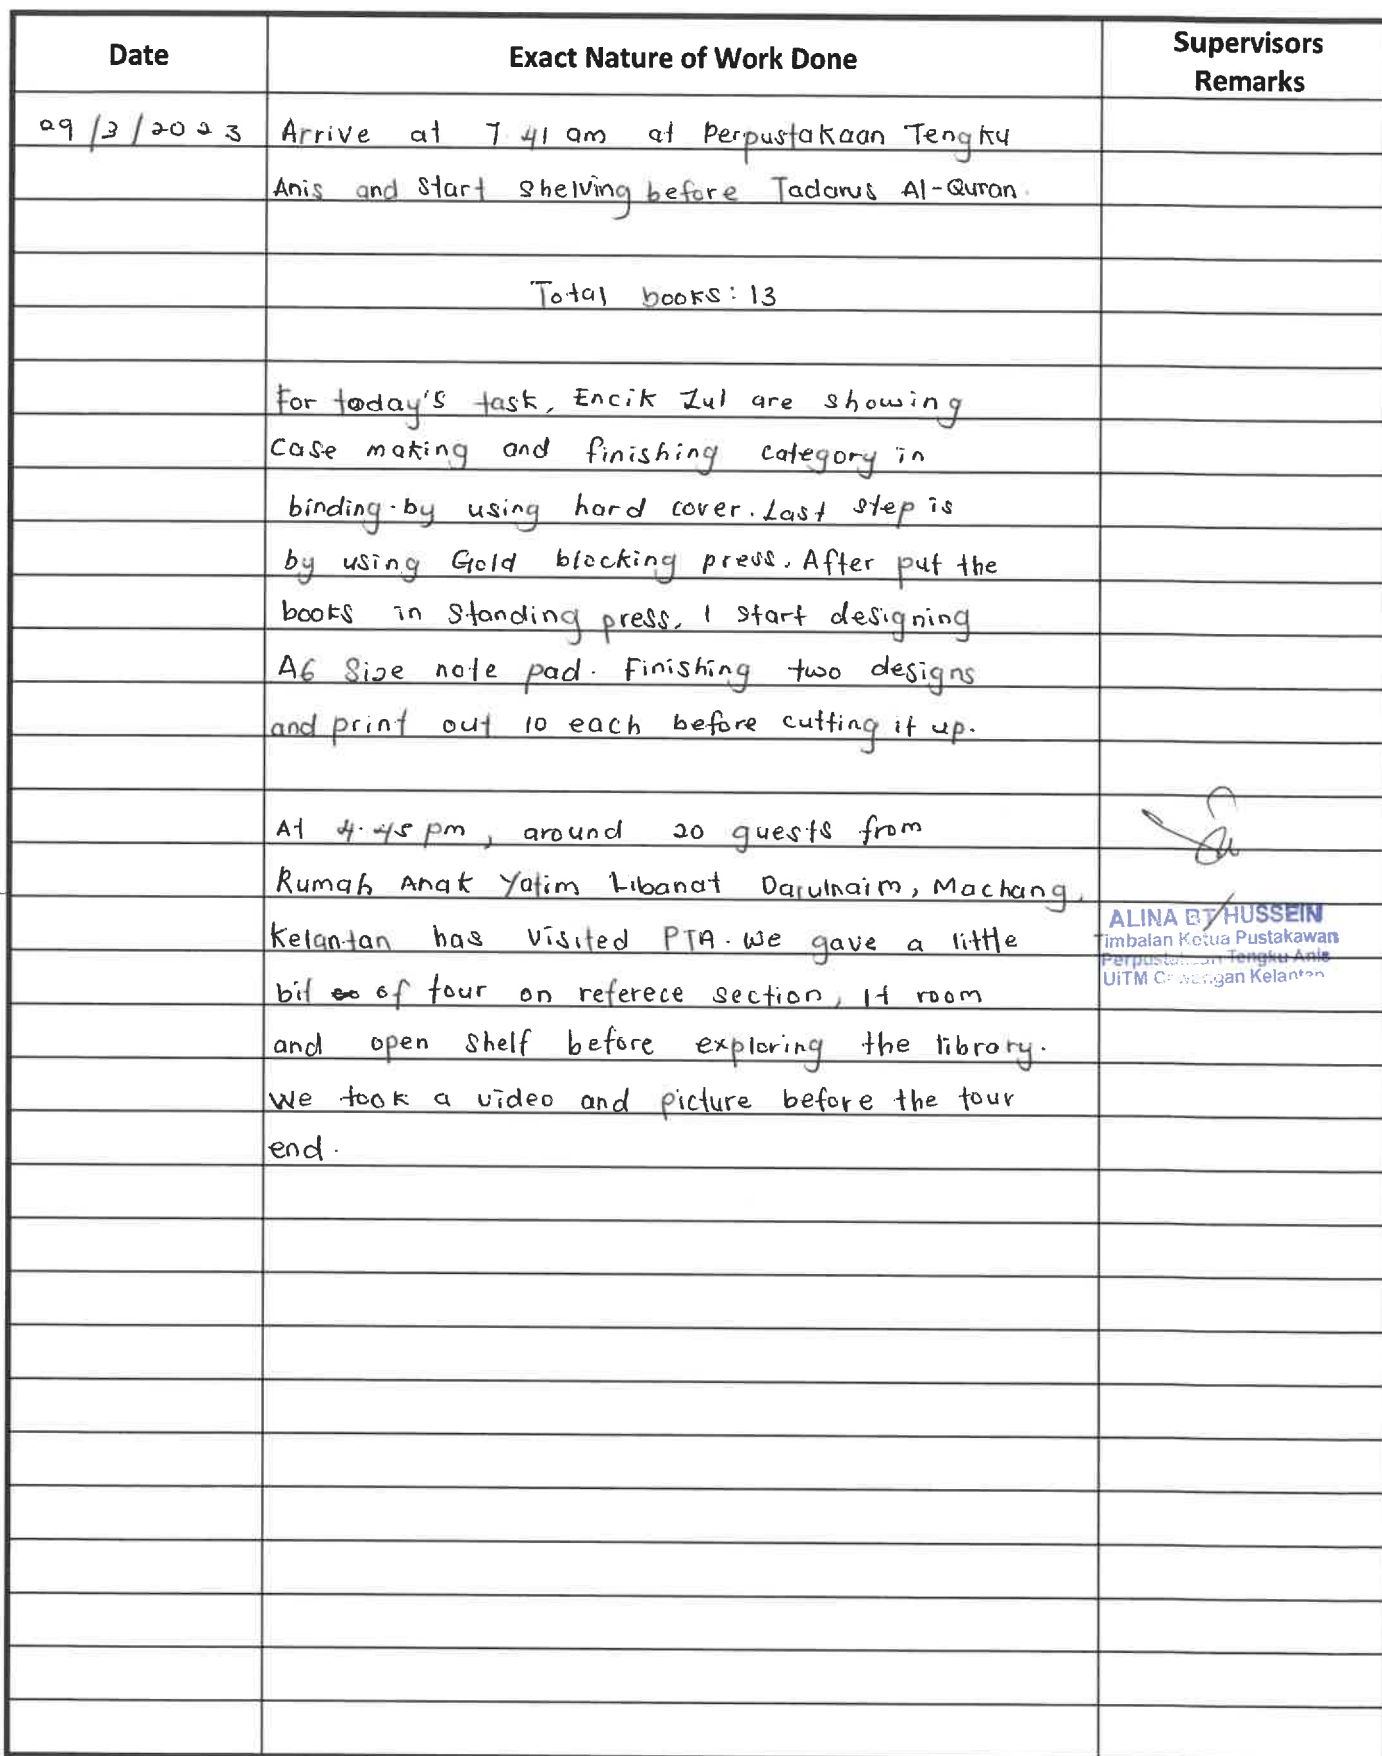 Date Exact Nature of Work Done Supervisors Remarks
29/3/2023 Arrive at 7.41 am at Perpustakaan Tengku
Anis and start shelving before Tadarus Al-Quran.
Total books: 13
For today's task, Encik Zul are showing
case making and finishing category in
binding by using hard cover. Last step is
by using Gold blocking press. After put the
books in standing press, I start designing
A6 Size note pad. Finishing two designs
and print out 10 each before cutting it up.
At 4.45 pm, around 20 guests from
Rumah Anak Yatim Libanat Darulnaim, Machang,
Kelantan has visited PTA. We gave a little
bit of tour on referece section, It room
and open shelf before exploring the library.
We took a video and picture before the tour
end.
ALINA BT HUSSEIN
Timbalan Ketua Pustakawan
Perpustakaan Tengku Anis
UiTM Cawangan Kelantan